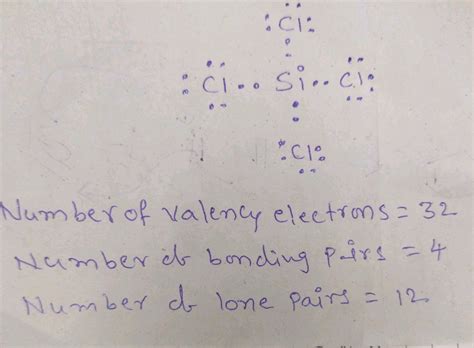 :Cl:
:Cl.. Si.. Cl:
:Cl:
Number of valency electrons = 32
Number of bonding pairs = 4
Number of lone pairs = 12